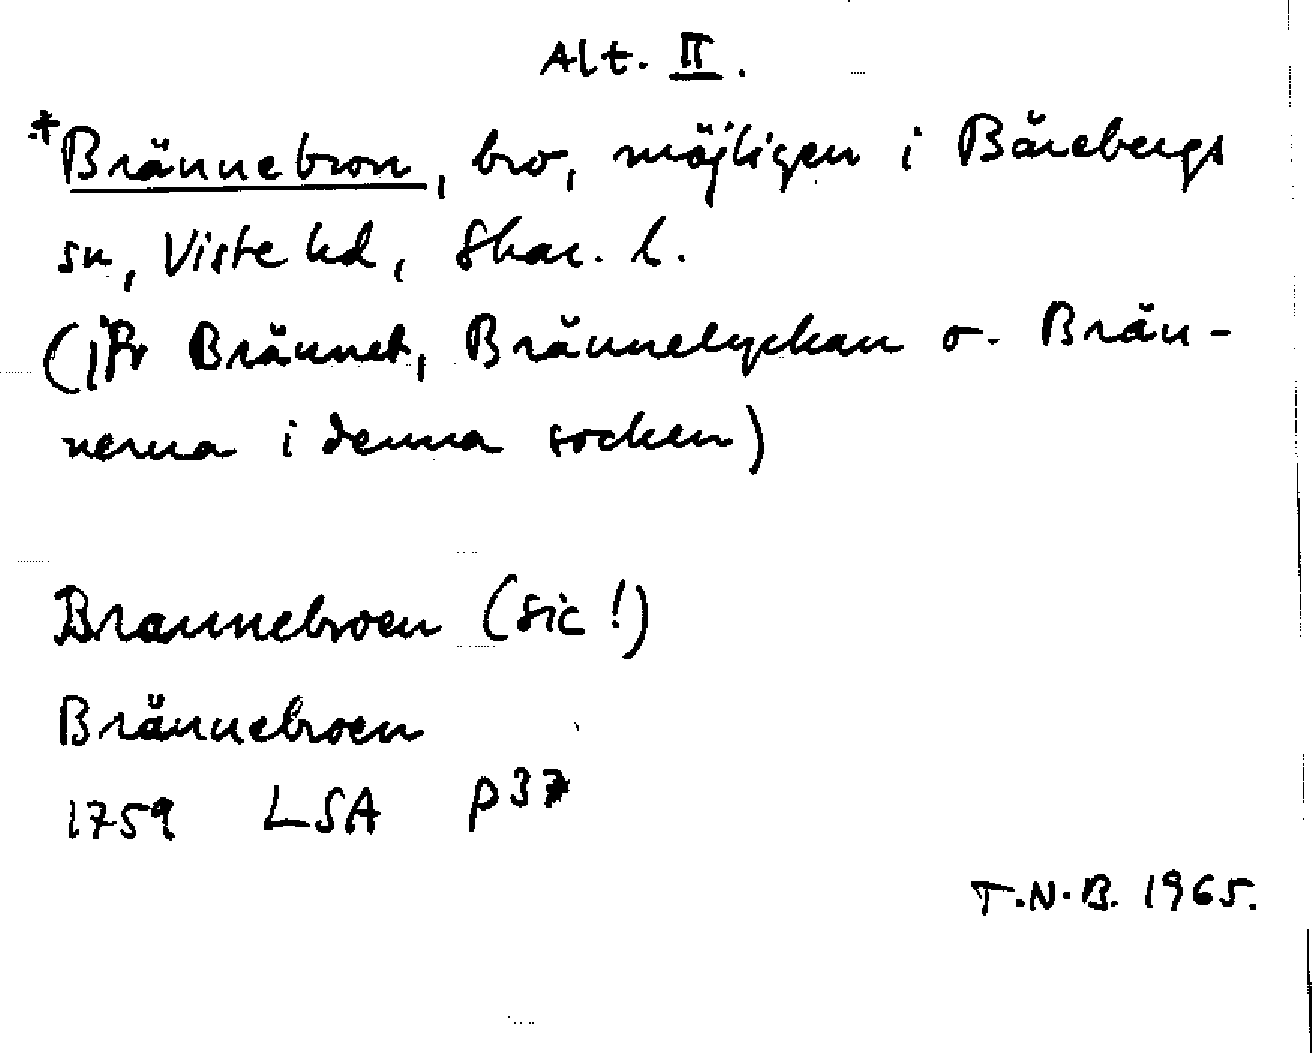 Alt. II.
*Brännebron, bro, möjligen i Bärebergs
sn, Viste hd, Skar. l.
(jfr Brännet, Brännelyckan o. Brän-
nerna i denna socken)
Brannebroen (sic!)
Brännebroen
1759 LSA P37
T.N.B. 1965.